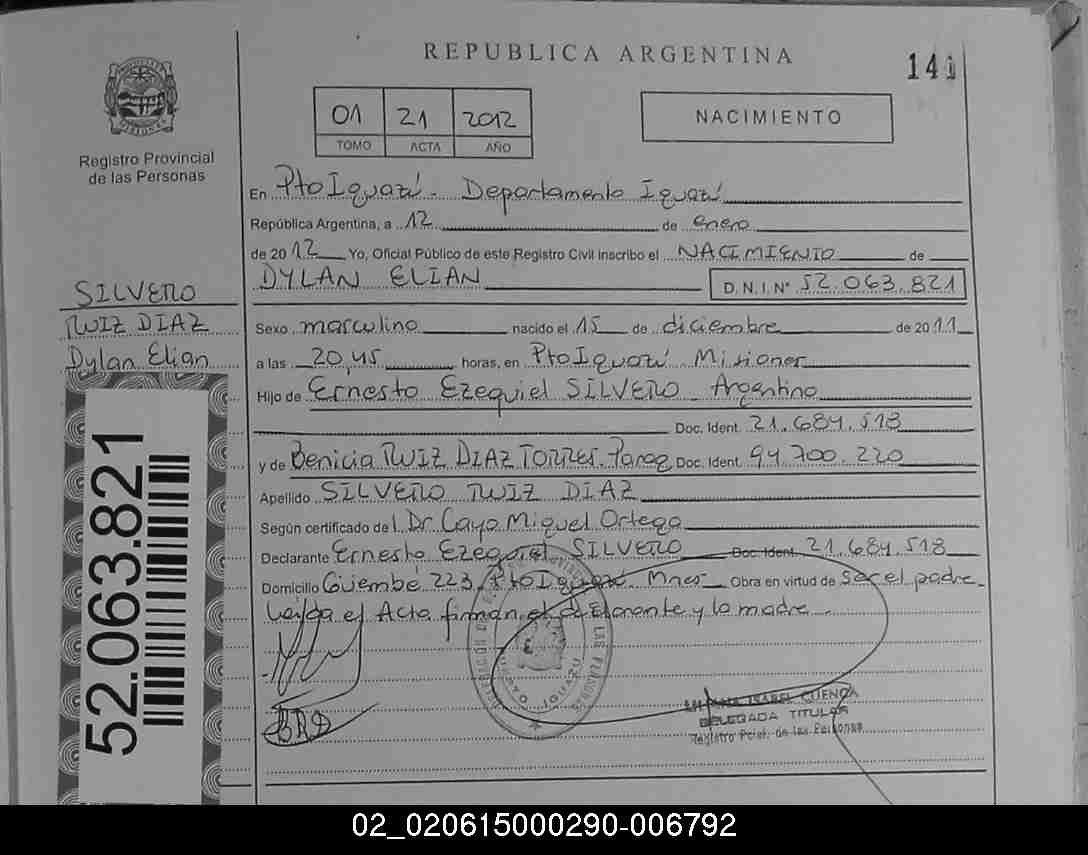 REPUBLICA ARGENTINA
141
01 21 2012
TOMO ACTA AÑO
NACIMIENTO
Registro Provincial
de las Personas
En Pto Iguazú - Departamento Iguazú
República Argentina, a 12 de enero
de 2012 Yo, Oficial Público de este Registro Civil inscribo el NACIMIENTO de
DYLAN ELIAN D.N.I Nº 52.063.821
SILVERO
RUIZ DIAZ
Dylan Elian
Sexo masculino nacido el 15 de diciembre de 2011
a las 20,45 horas, en Pto Iguazú Misiones
Hijo de Ernesto Ezequiel SILVERO Argentino
Doc. Ident. 21.684.518
y de Benicia RUIZ DIAZ TORRES. Parag Doc. Ident. 94.700.220
Apellido SILVERO RUIZ DIAZ
Según certificado del Dr Cayo Miguel Ortega
Declarante Ernesto Ezequiel SILVERO Doc. Ident. 21.684.518
Domicilio Güembé 223 Pto Iguazú Mnes Obra en virtud de ser el padre
Leída el Acta firman el declarante y la madre.
52.063.821
PUERTO IGUAZU
ISABEL CUENCA
DELEGADA TITULAR
Registro Pcial. de las Personas
02_020615000290-006792